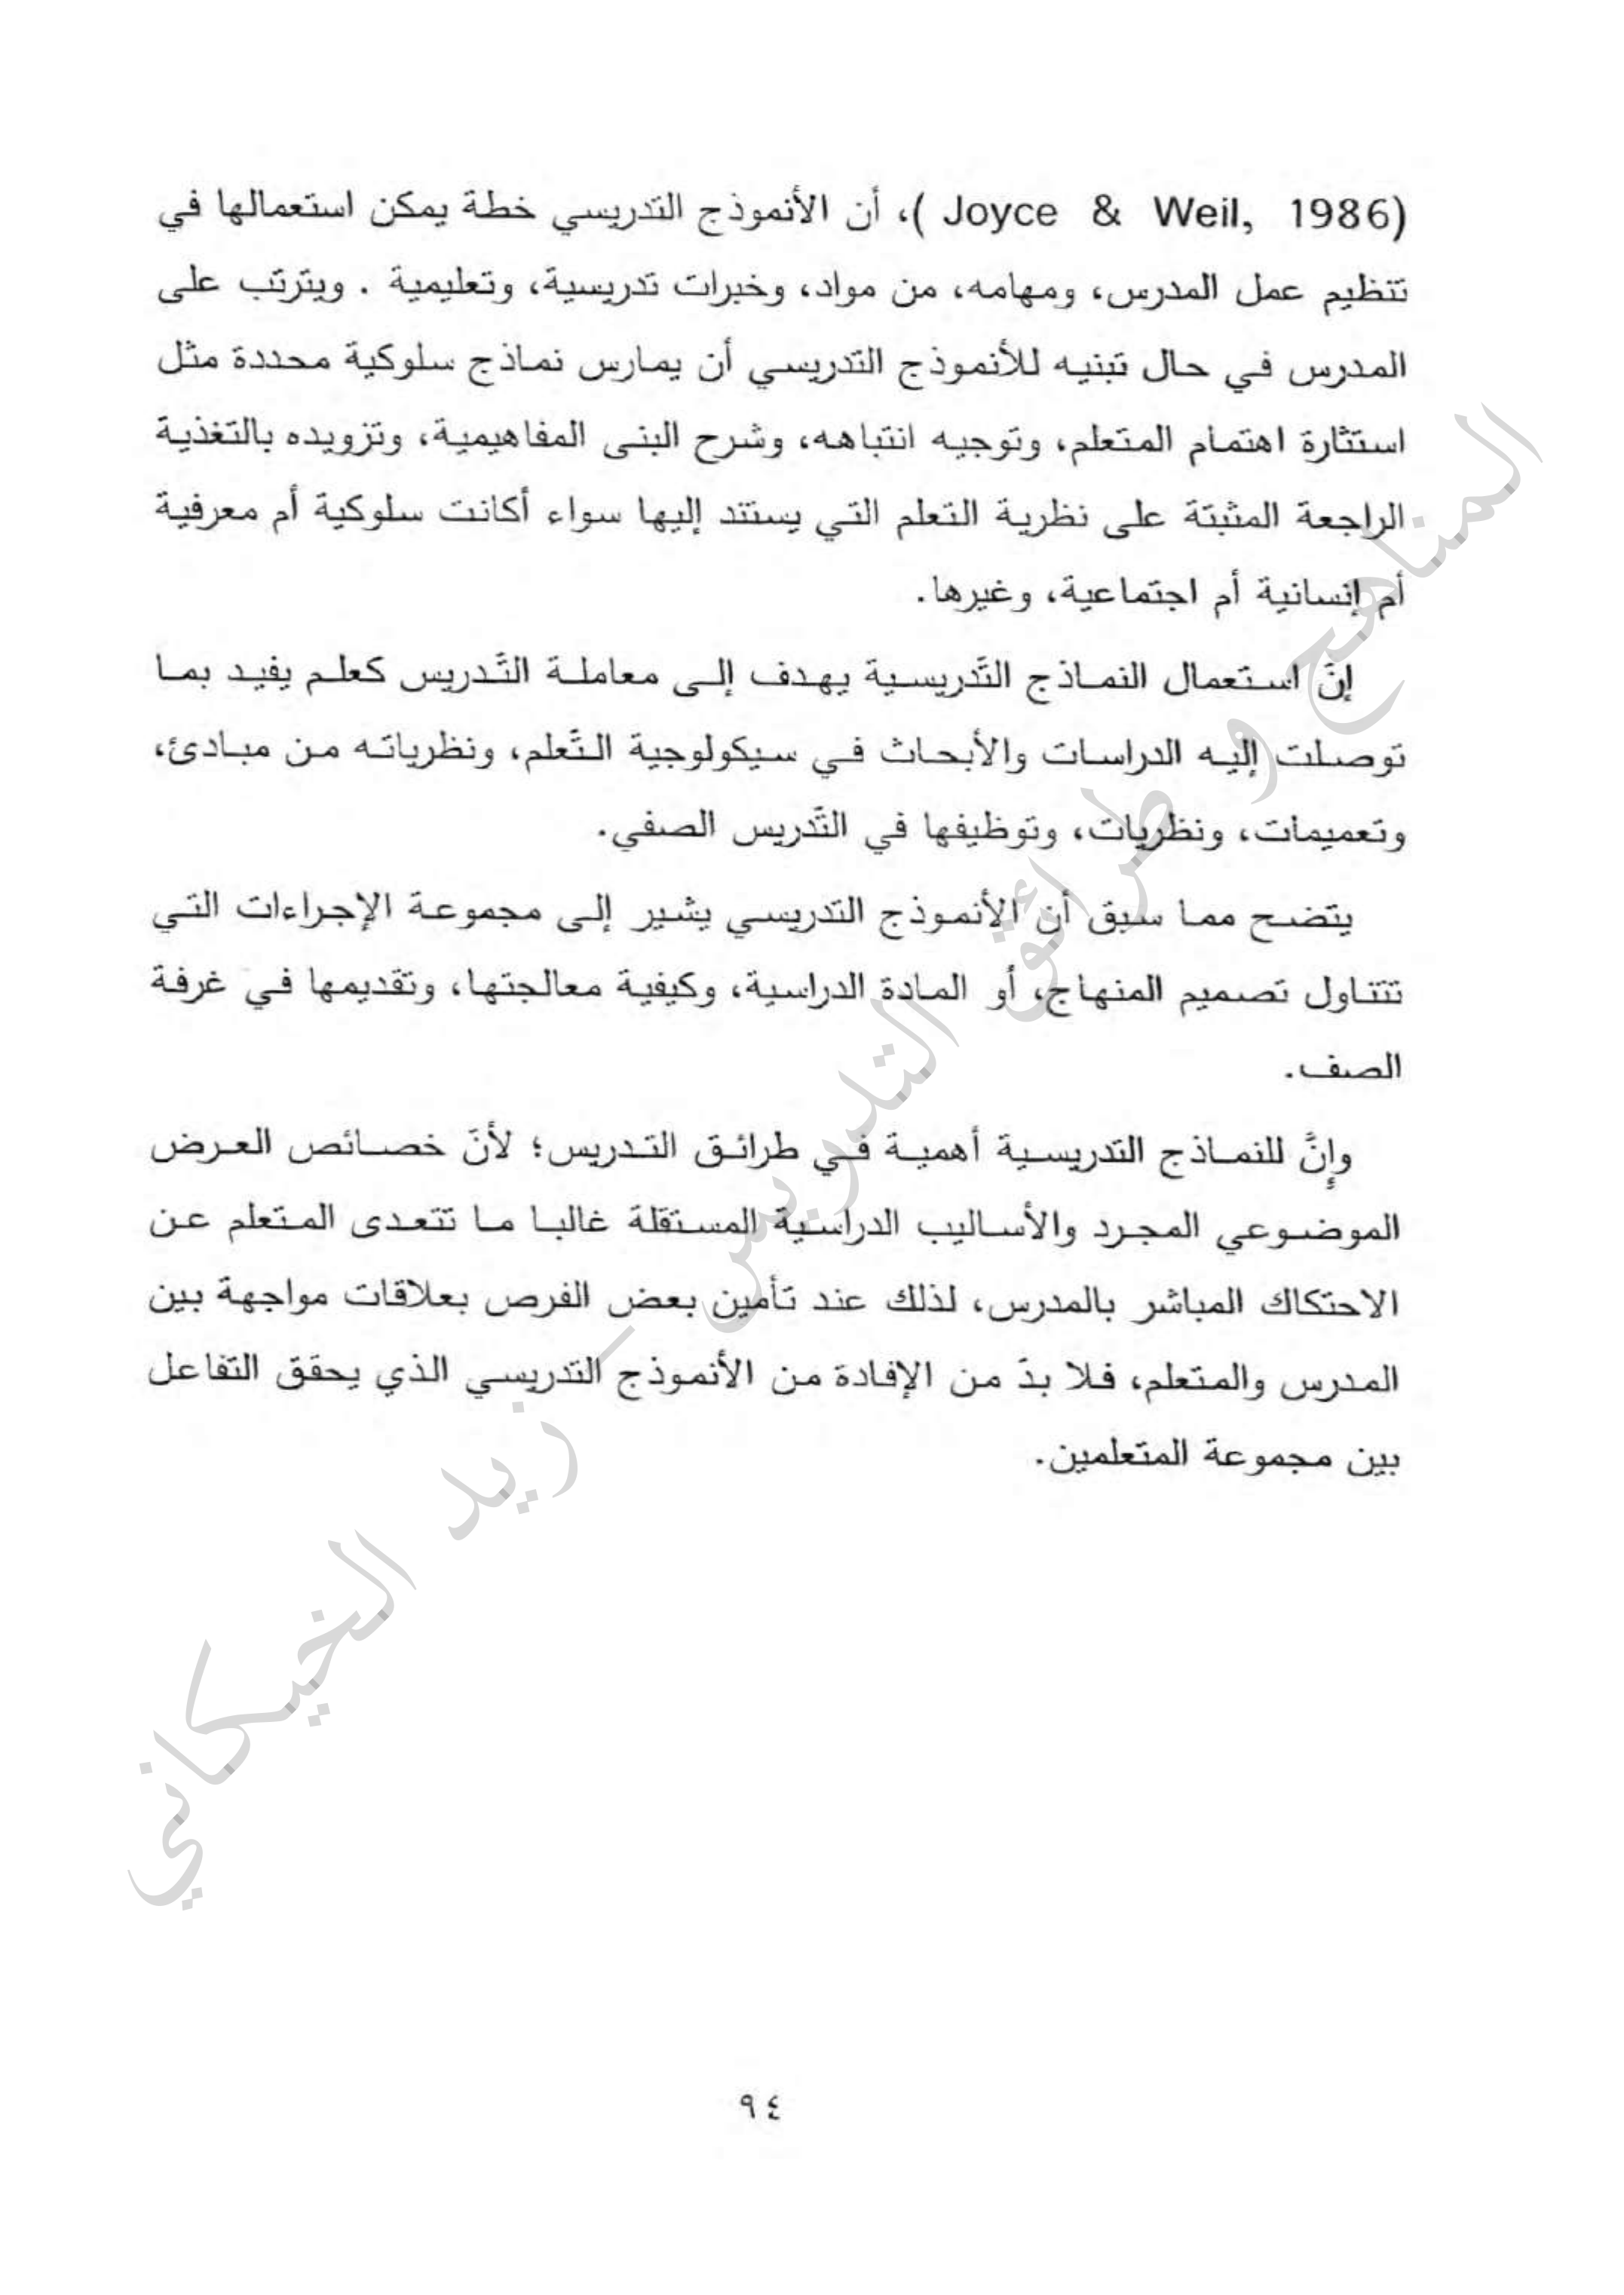 (Joyce & Weil, 1986 )، أن الأنموذج التدريسي خطة يمكن استعمالها في
تنظيم عمل المدرس، ومهامه، من مواد، وخبرات تدريسية، وتعليمية . ويترتب على
المدرس في حال تبنيه للأنموذج التدريسي أن يمارس نماذج سلوكية محددة مثل
استثارة اهتمام المتعلم، وتوجيه انتباهه، وشرح البنى المفاهيمية، وتزويده بالتغذية
الراجعة المثبتة على نظرية التعلم التي يستند إليها سواء أكانت سلوكية أم معرفية
أم إنسانية أم اجتماعية، وغيرها.
إنّ استعمال النماذج التَّدريسية يهدف إلى معاملة التَّدريس كعلم يفيد بما
توصلت إليه الدراسات والأبحاث في سيكولوجية التَّعلم، ونظرياته من مبادئ،
وتعميمات، ونظريات، وتوظيفها في التَّدريس الصفي.
يتضح مما سبق أن الأنموذج التدريسي يشير إلى مجموعة الإجراءات التي
تتناول تصميم المنهاج، أو المادة الدراسية، وكيفية معالجتها، وتقديمها في غرفة
الصف.
وإِنَّ للنماذج التدريسية أهمية في طرائق التدريس؛ لأنّ خصائص العرض
الموضوعي المجرد والأساليب الدراسية المستقلة غالبا ما تتعدى المتعلم عن
الاحتكاك المباشر بالمدرس، لذلك عند تأمين بعض الفرص بعلاقات مواجهة بين
المدرس والمتعلم، فلا بدّ من الإفادة من الأنموذج التدريسي الذي يحقق التفاعل
بين مجموعة المتعلمين.
المناهج و طرائق التدريس – زيد الخيكاني
٩٤